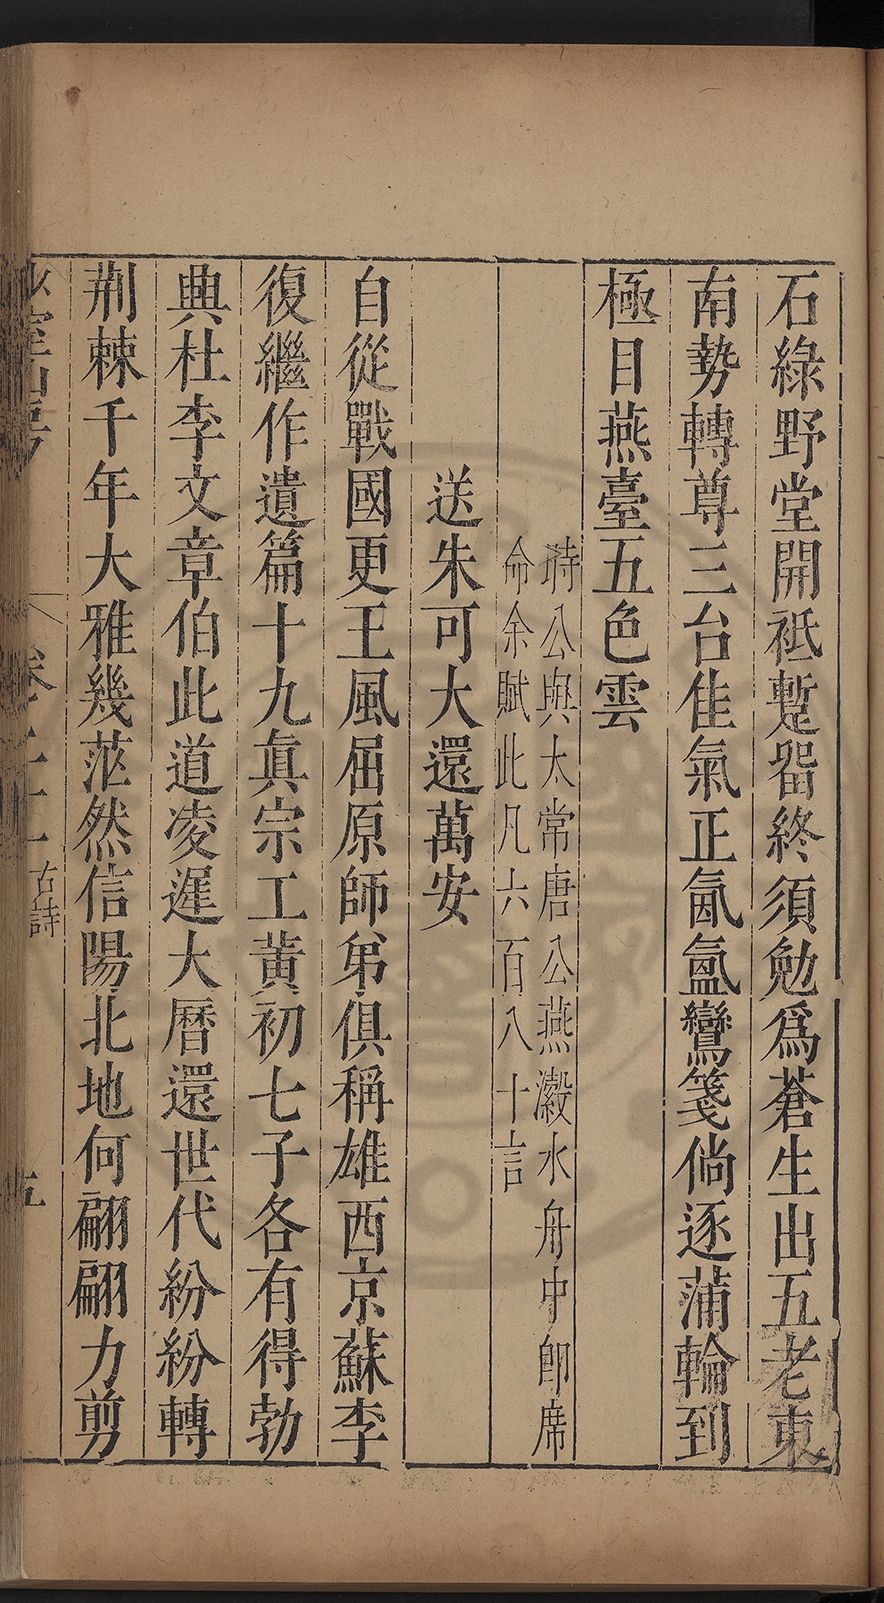 石綠野堂開袛蹔畱終須勉爲蒼生出五老東
南勢轉尊三台佳氣正氤氳鸞箋倘逐蒲輪到
極目燕臺五色雲
時公與太常唐公燕瀫水舟中卽席
命余賦此凡六百八十言
送朱可大還萬安
自從戰國更王風屈原師弟俱稱雄西京蘇李
復繼作遺篇十九真宗工黃初七子各有得勃
典杜李文章伯此道凌遲大曆還世代紛紛轉
荆棘千年大雅幾茫然信陽北地何翩翩力剪
室山房
卷二十二
古詩
五